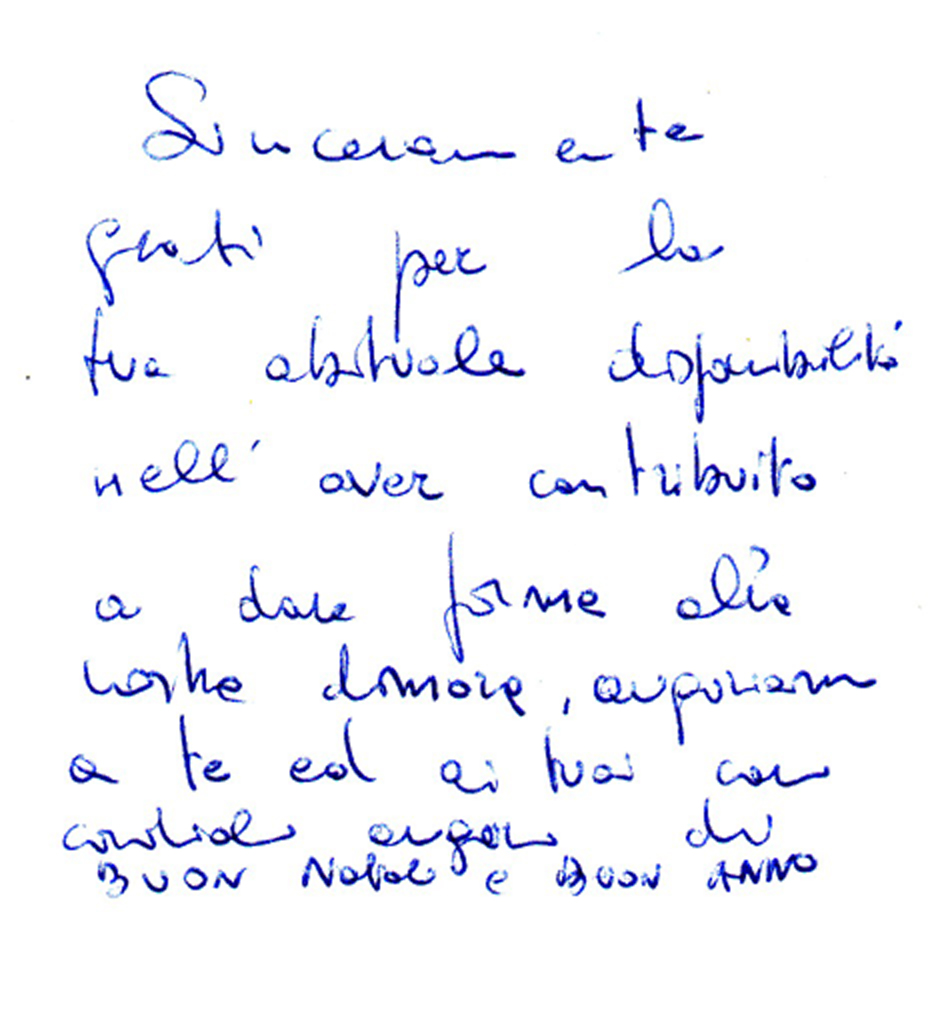 Sinceramente
grati per la
tua abituale disponibilità
nell'aver contribuito
a dare forma alla
nostra dimora, auguriamo
a te ed ai tuoi cari
cordiali auguri di
BUON NATALE e BUON ANNO